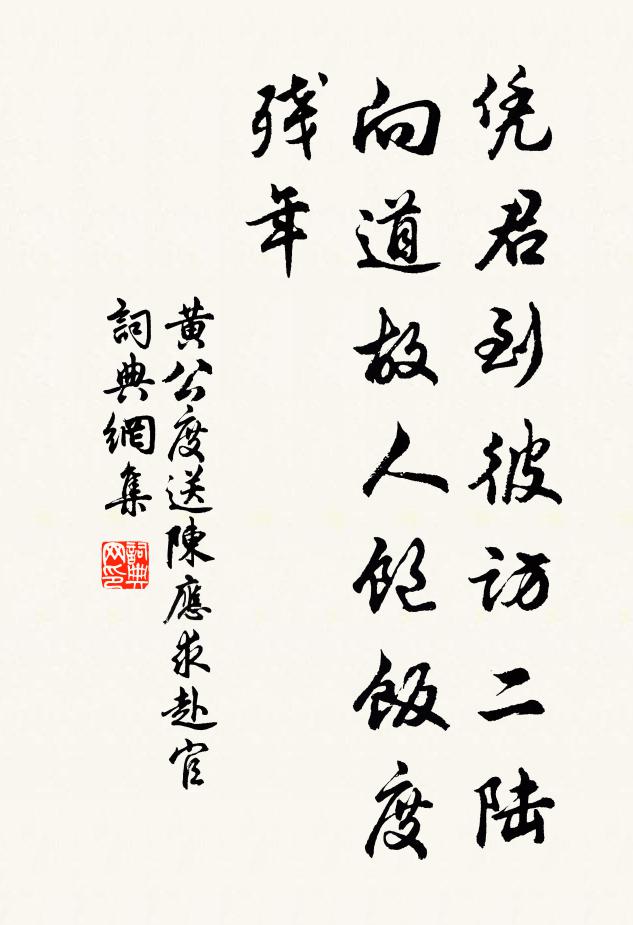 凭君到彼访二陆
向道故人饱饭度
残年
黄公度送陳應求赴官
詞典網集
詞典网印